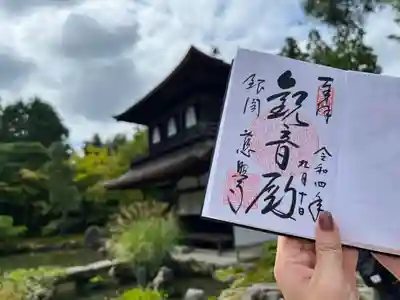 奉拝
令和四年
九月十日
観音殿
銀閣
慈照寺